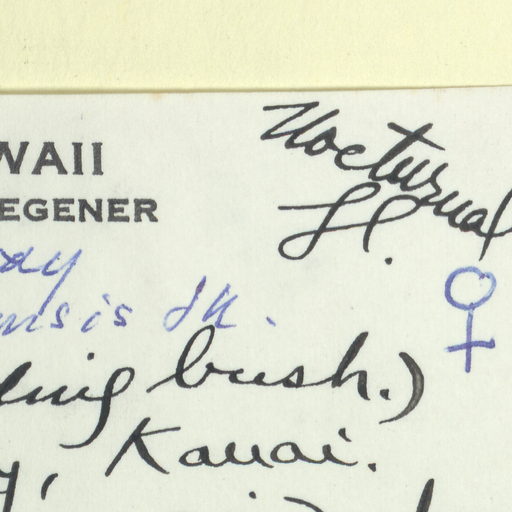 WAII
EGENER
Nocturnal
fl.
ay
nsis
♀
ling bush.)
y, Kauai.